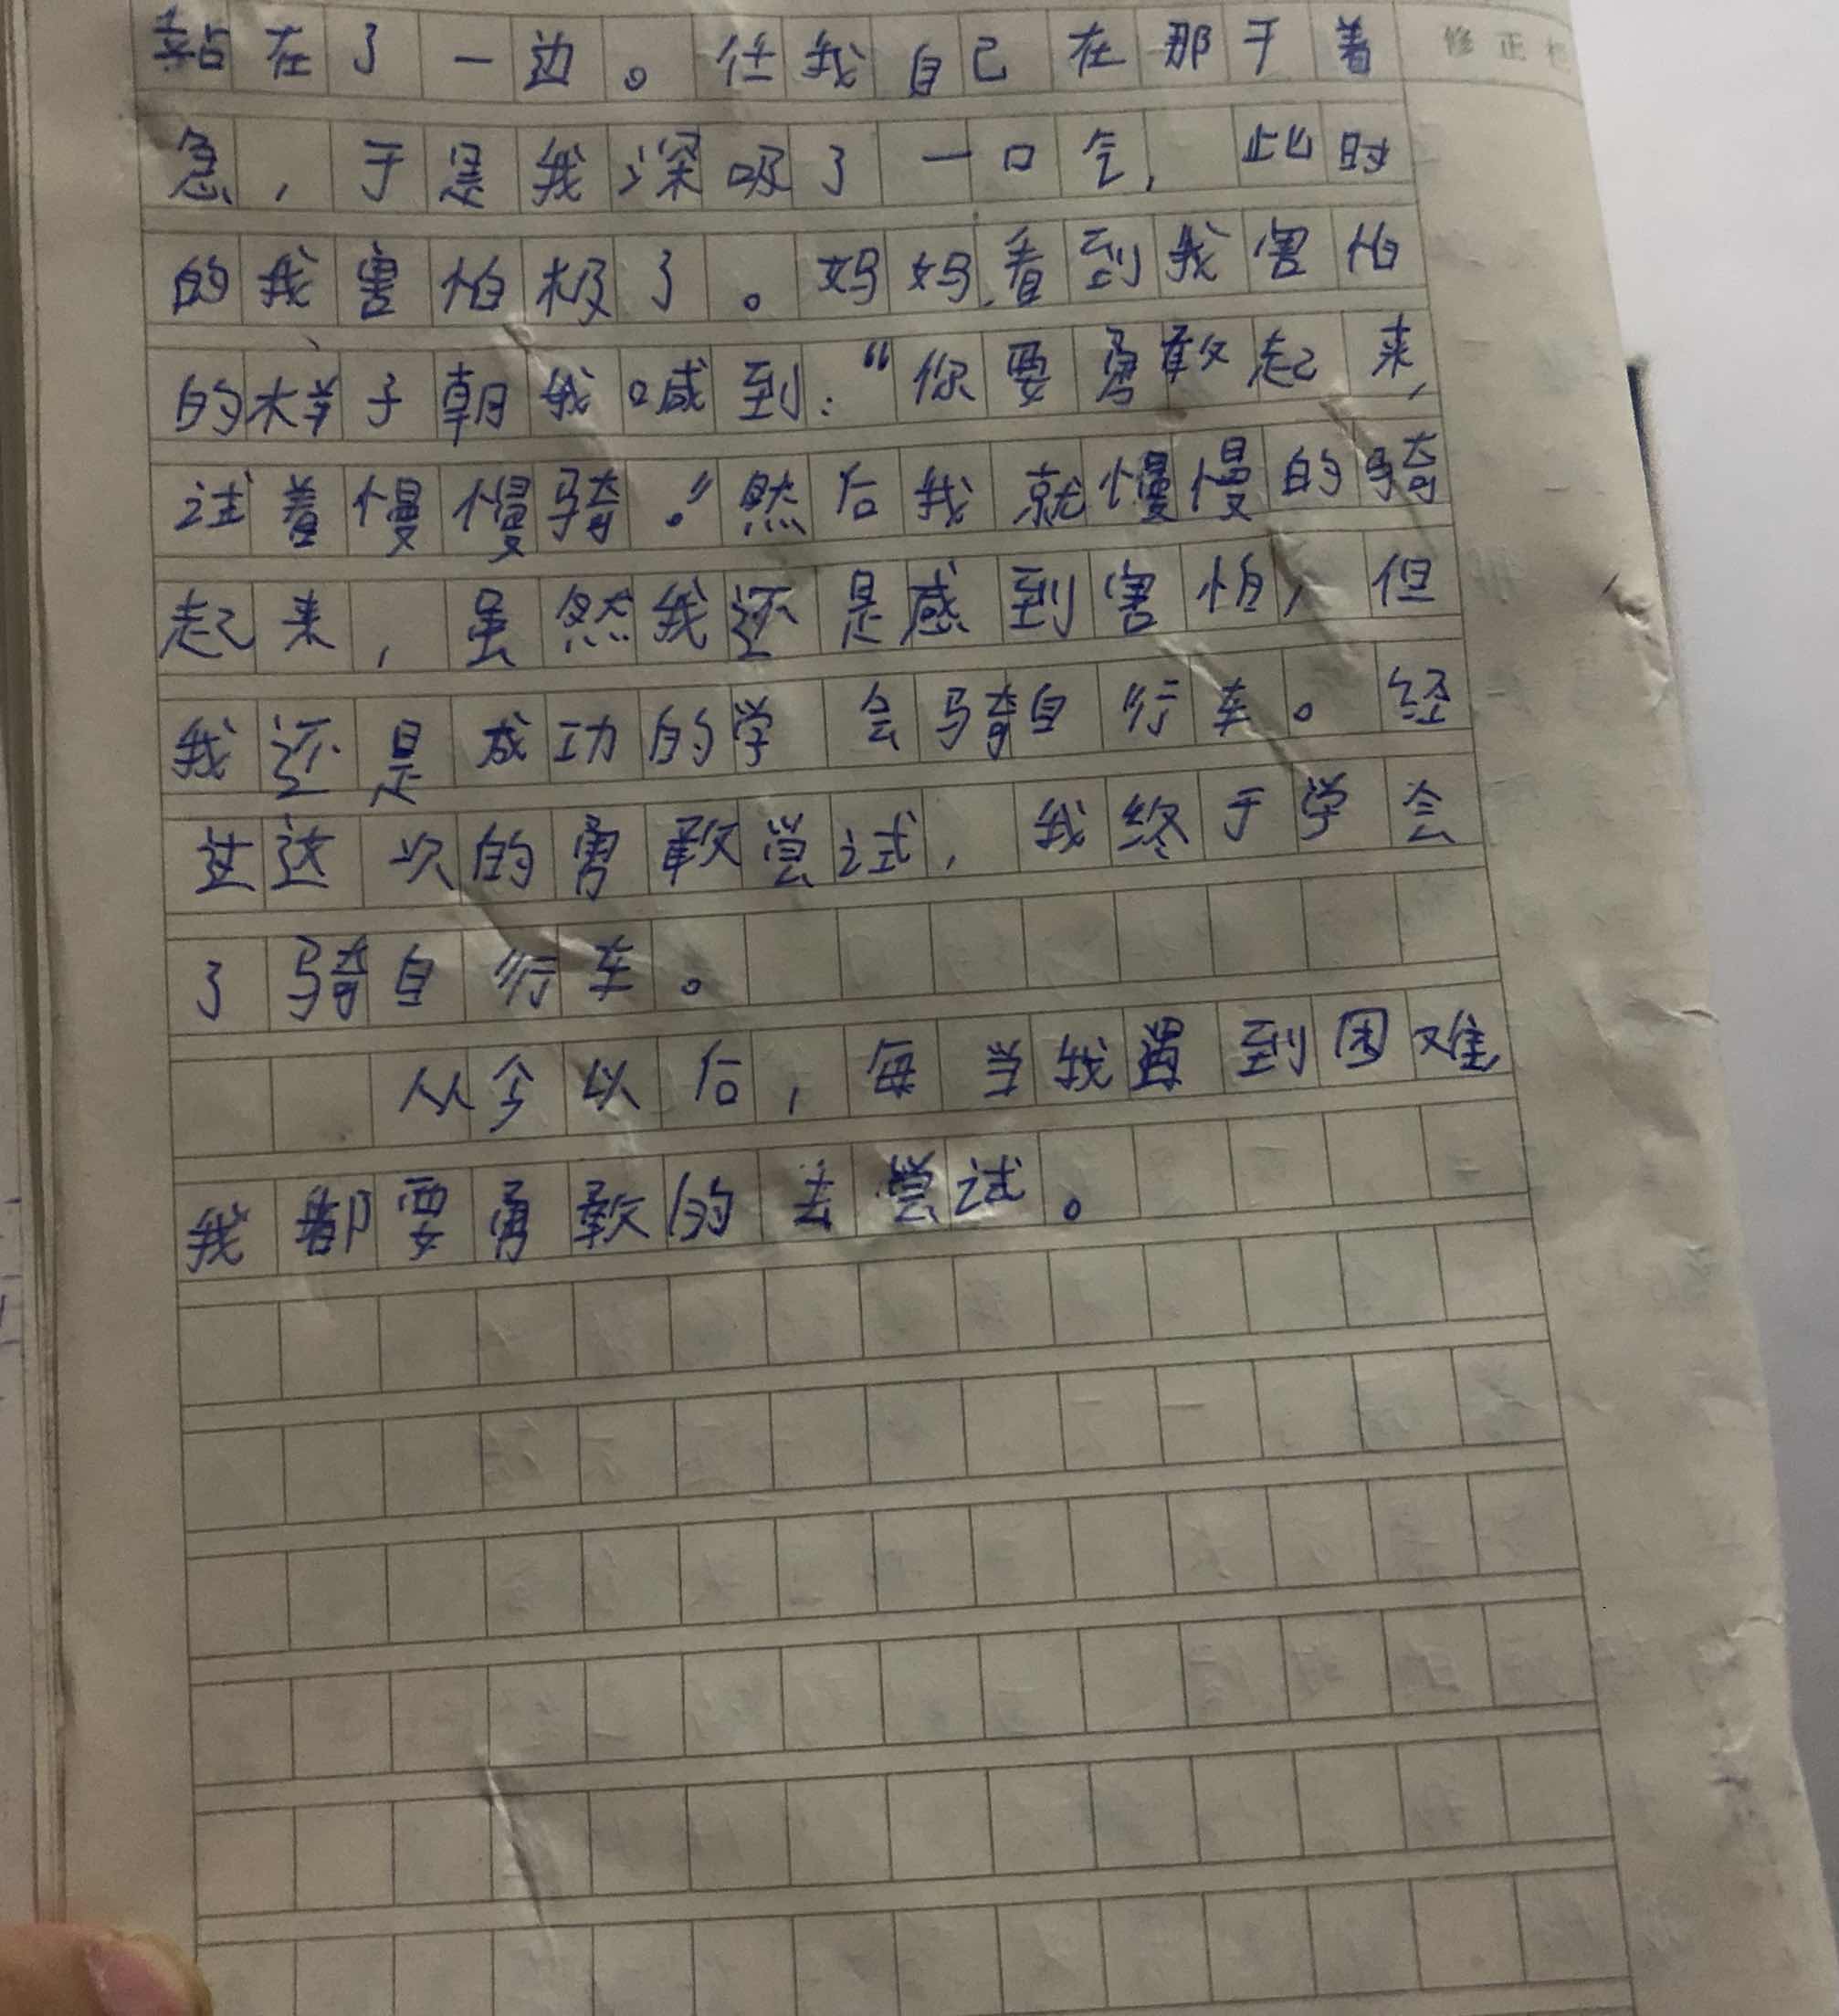 站在了一边。任我自己在那干着
修正栏
急，于是我深吸了一口气，此时
的我害怕极了。妈妈看到我害怕
的样子朝我喊到：“你要勇敢起来，
试着慢慢骑。”然后我就慢慢的骑
起来，虽然我还是感到害怕，但
我还是成功的学会骑自行车。经
过这次的勇敢尝试，我终于学会
了骑自行车。
从今以后，每当我遇到困难
我都要勇敢的去尝试。